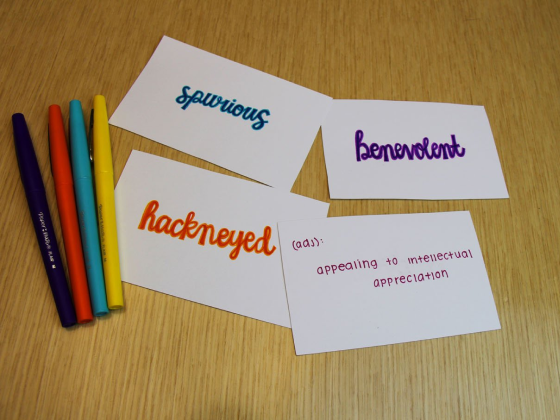 spurious
benevolent
hackneyed
(adj):
appealing to intellectual
appreciation